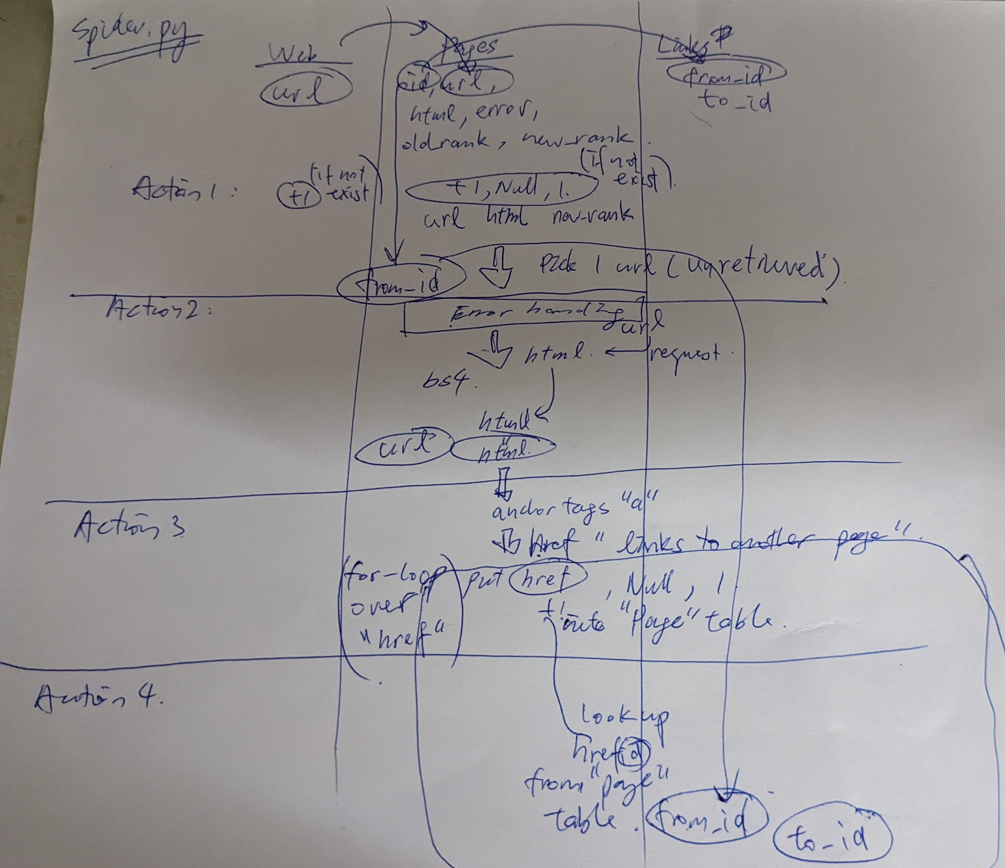 Spider.py
Web
Pages
Links
url
id, url,
from_id
to_id
html, error,
old_rank, new_rank.
Action 1:
+1 (if not exist)
+1, Null, 1.
(if not exist).
url html new-rank
from_id
Pick 1 url (unretrieved)
Action 2:
Error handling
url
html. ← request.
bs4.
html
url html.
Action 3
anchor tags "a"
href "links to another page".
(for-loop over "href")
put href, Null, 1.
+1 into "Page" table.
Action 4.
look up
href id
from "page"
table.
from_id
to_id